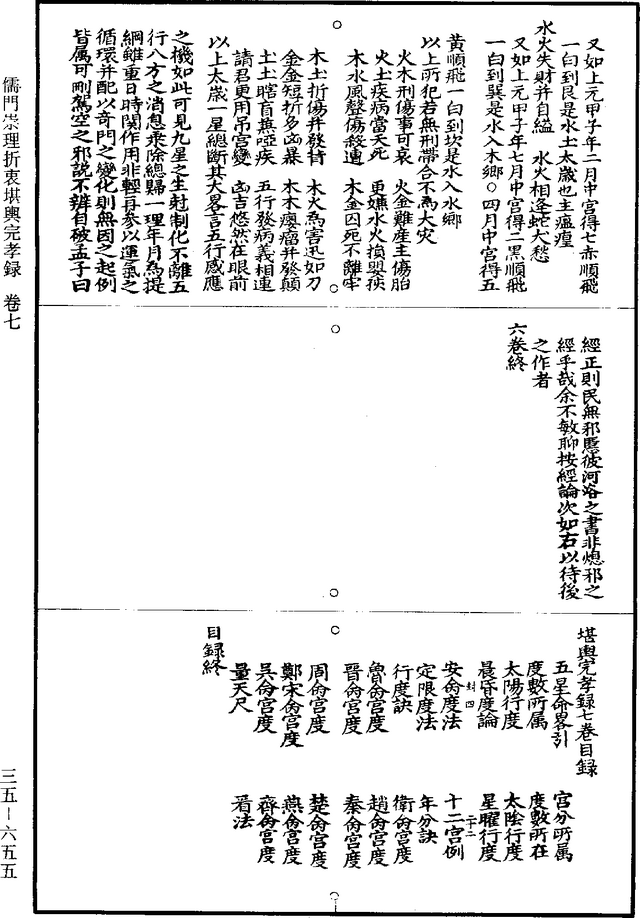 又如上元甲子年二月中宮得七赤順飛
一白到艮是水土太歲也主瘟瘟
水火失財并自縊　水火相逢蛇大愁
又如上元甲子年七月中宮得二黑順飛
一白到巽是水入木鄉○四月中宮得五
黃順飛一白到坎是水入水鄉
以上所犯若無刑帶合不為大灾
火木刑傷事可哀　火金難產主傷胎
火土疾病當夭死　更嫌水火損眼疾
木水風聲傷殘遭　木金囚死不離牢
木土折傷并發背　木火為害迅如刀
金金短折多凶暴　木木瘿瘤并發顛
土土瞎盲無啞疾　五行發病義相連
請君更用吊宮變　凶吉悠然在眼前
以上太歲一星總斷其大畧言五行感應
之機如此可見九星之生尅制化不離五
行八方之消息乘除總歸一理年月為提
綱雖重日時關作用非輕再參以運氣之
循環并配以奇門之變化則無因之起例
皆屬可刪駕空之邪說不辨自破孟子曰
經正則民無邪慝彼河洛之書非熄邪之
經乎哉余不敏聊按經論次如右以待後
之作者
六卷終
堪輿完孝録七卷目録
五星命畧引　宮分所属
度數所属　度數所在
太陽行度　太陰行度
晨昏度論　星曜行度
安命度法　十二宮例
定限度法　年分訣
行度訣　衛命宮度
魯命宮度　趙命宮度
晉命宮度　秦命宮度
周命宮度　楚命宮度
鄭宋命宮度　燕命宮度
吳命宮度　齊命宮度
量天尺　看法
目録終
儒門崇理折衷堪輿完孝録　卷七
三五－六五五